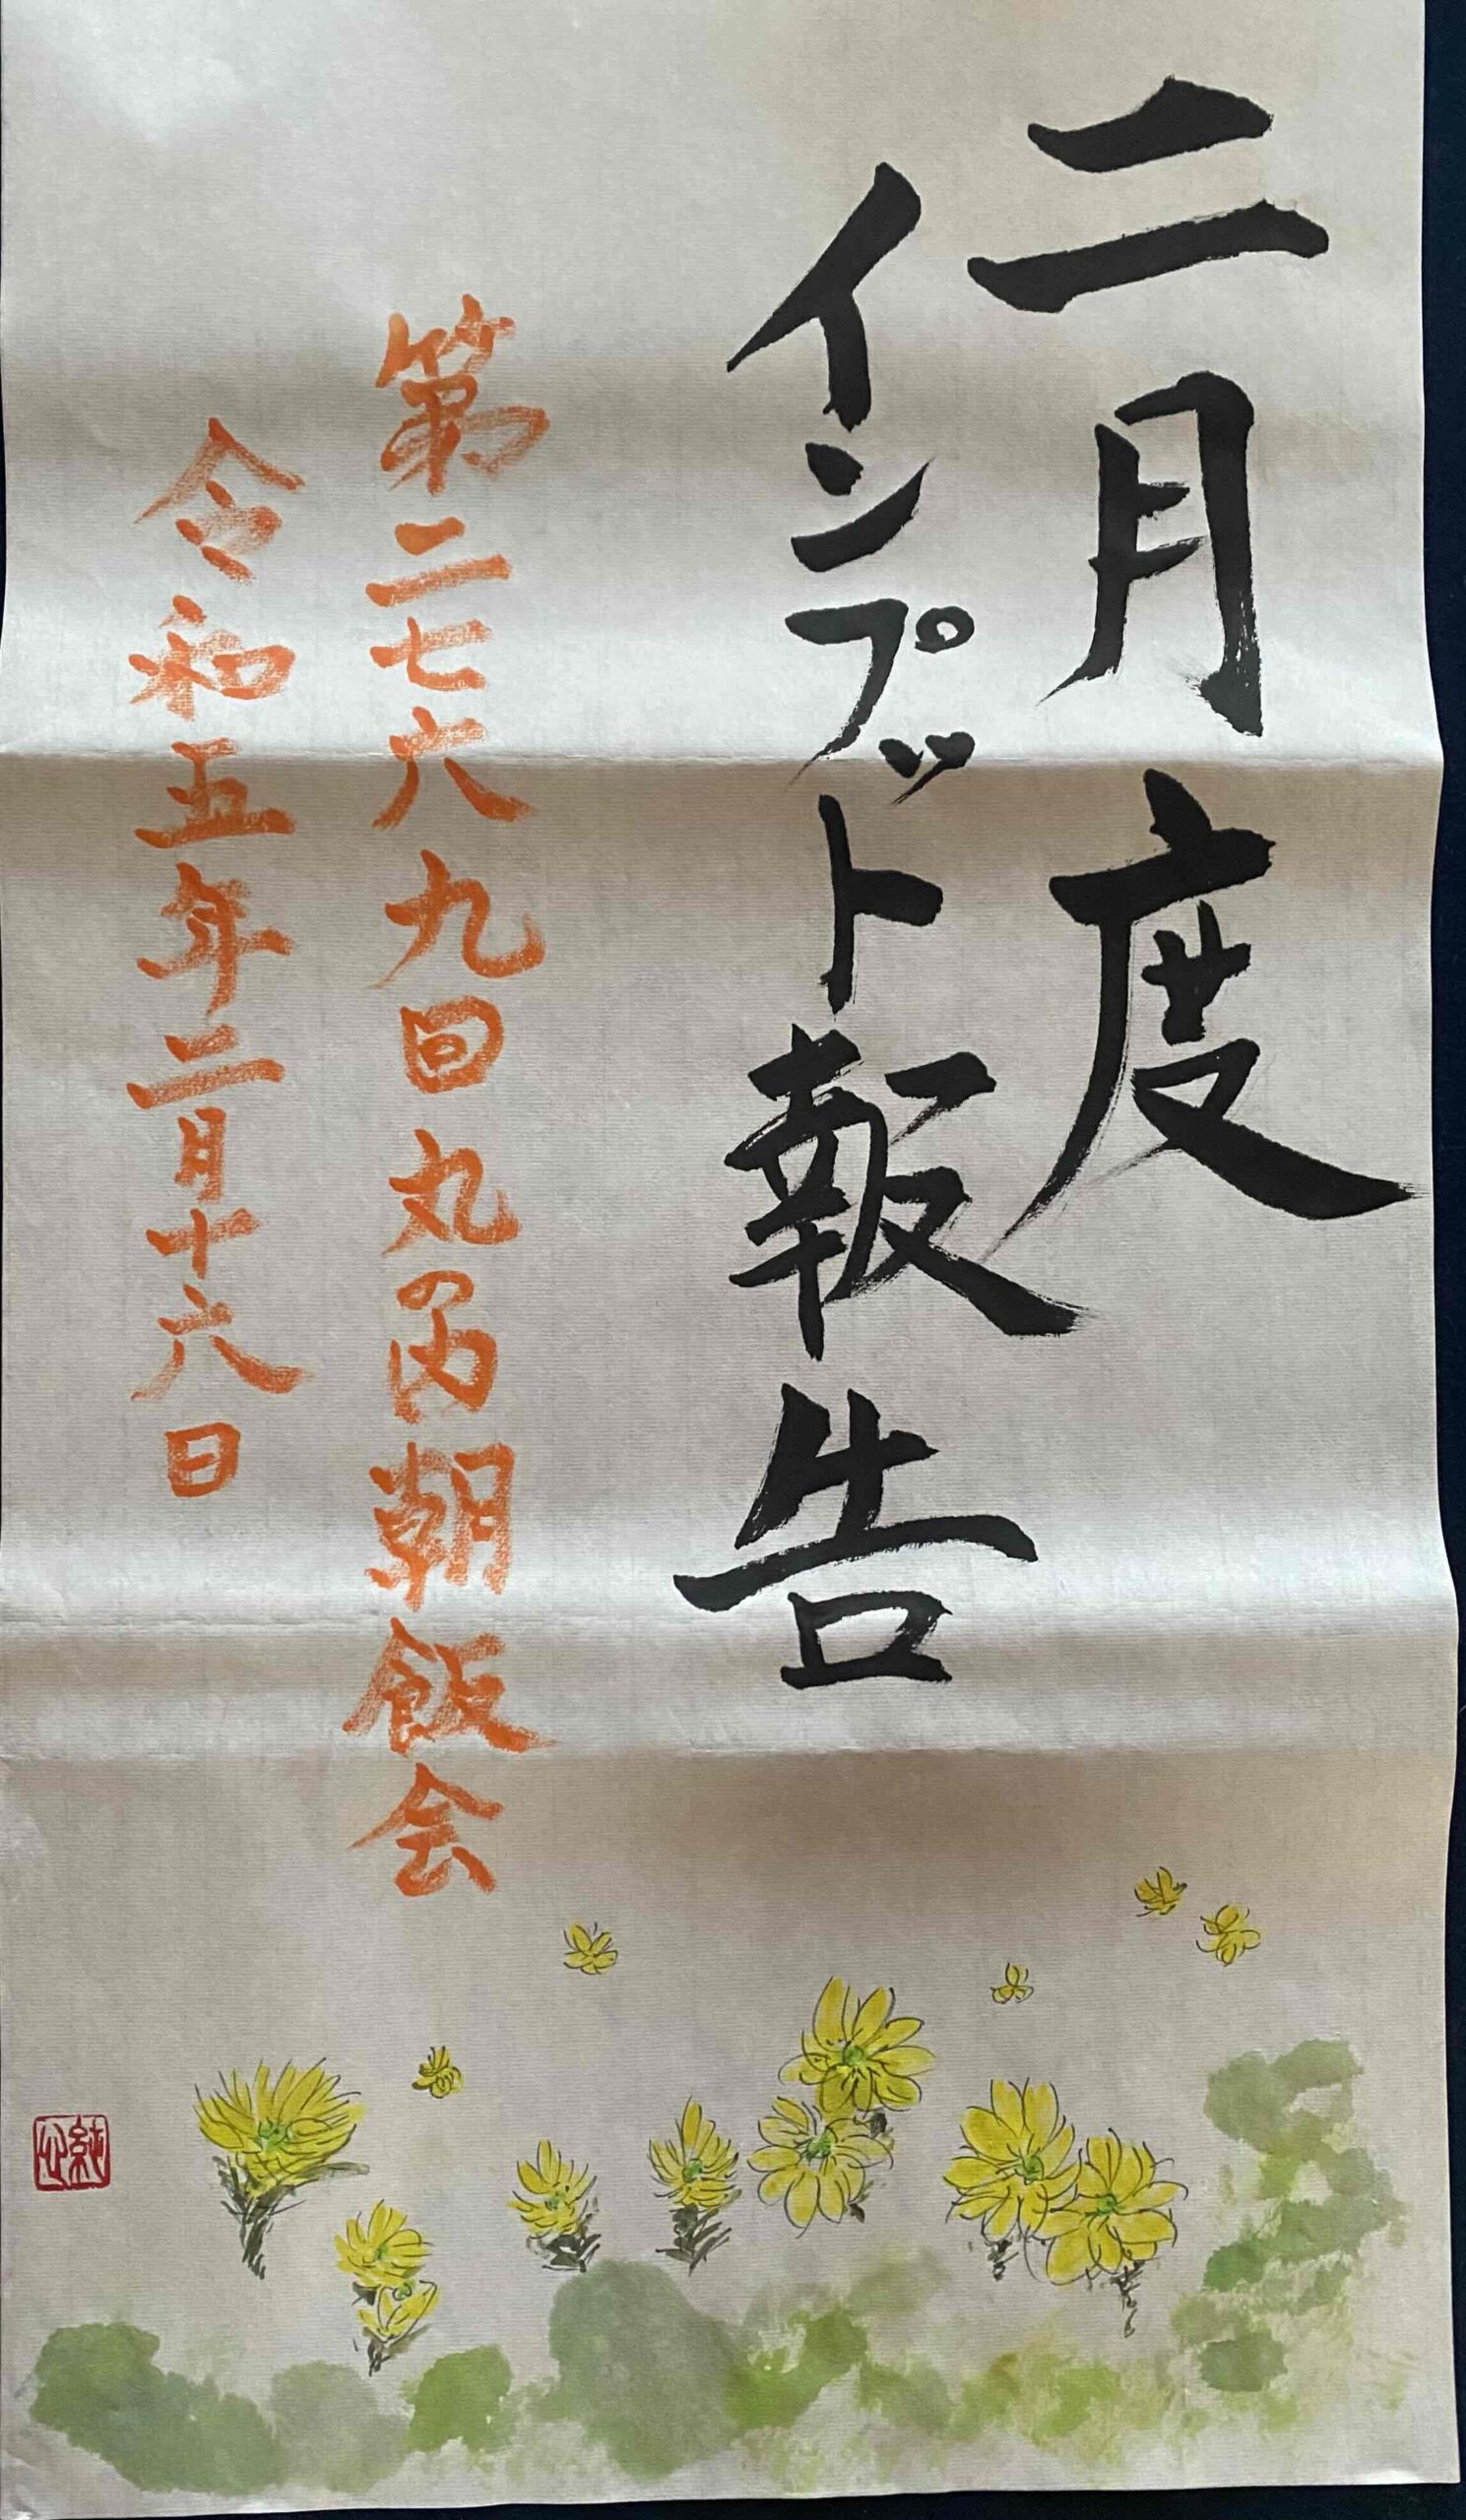 二月度
インプット報告
第二七六九回丸の内朝飯会
令和五年二月十六日